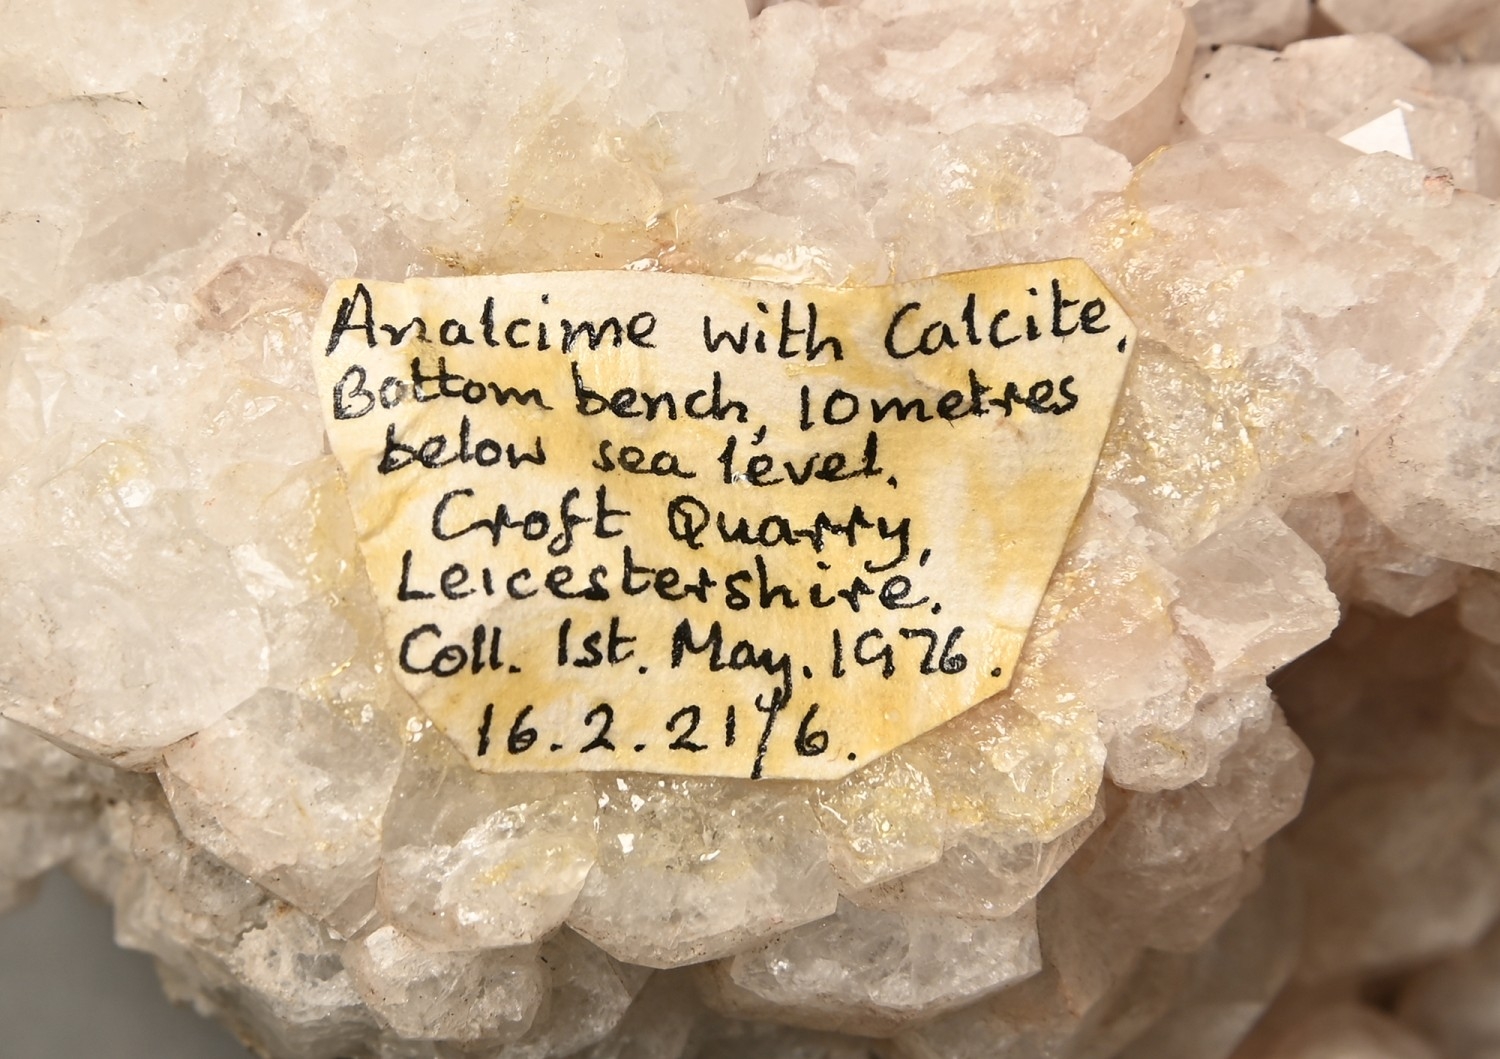 Analcime with Calcite,
Bottom bench, 10 metres
below sea level.
Croft Quarry,
Leicestershire.
Coll. 1st. May. 1976.
16.2.21/6.